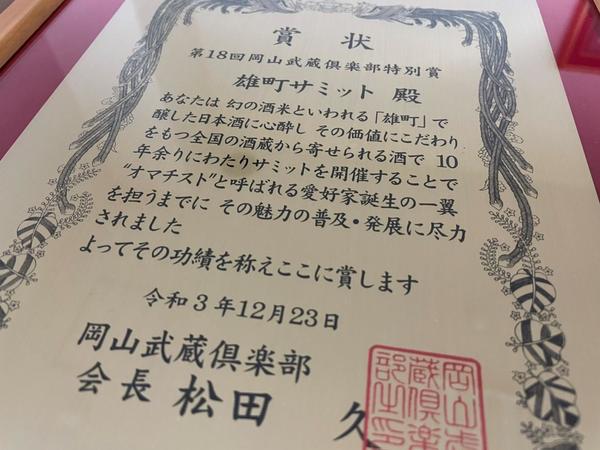 賞状
第18回岡山武蔵倶楽部特別賞
雄町サミット 殿
あなたは 幻の酒米といわれる「雄町」で
醸した日本酒に心酔し その価値にこだわり
をもつ全国の酒蔵から寄せられる酒で 10
年余りにわたりサミットを開催することで
"オマチスト"と呼ばれる愛好家誕生の一翼
を担うまでに その魅力の普及・発展に尽力
されました
よってその功績を称えここに賞します
令和3年12月23日
岡山武蔵倶楽部
会長 松田 久
岡山武
蔵倶楽
部之印